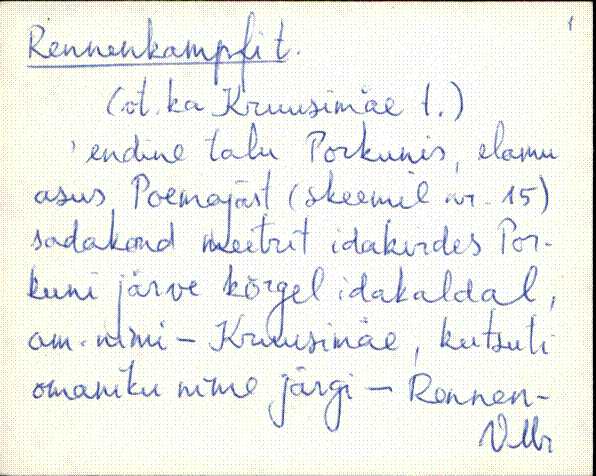 1
Rennenkampfi t.
(vt. ka Kruusimäe t.)
'endine talu Porkunis, elamu
asus Poemajast (skeemil nr. 15)
sadakond meetrit idakirdes Por-
kuni järve kõrgel idakaldal,
am. nimi – Kruusimäe, kutsuti
omaniku nime järgi – Rennen-
VMr